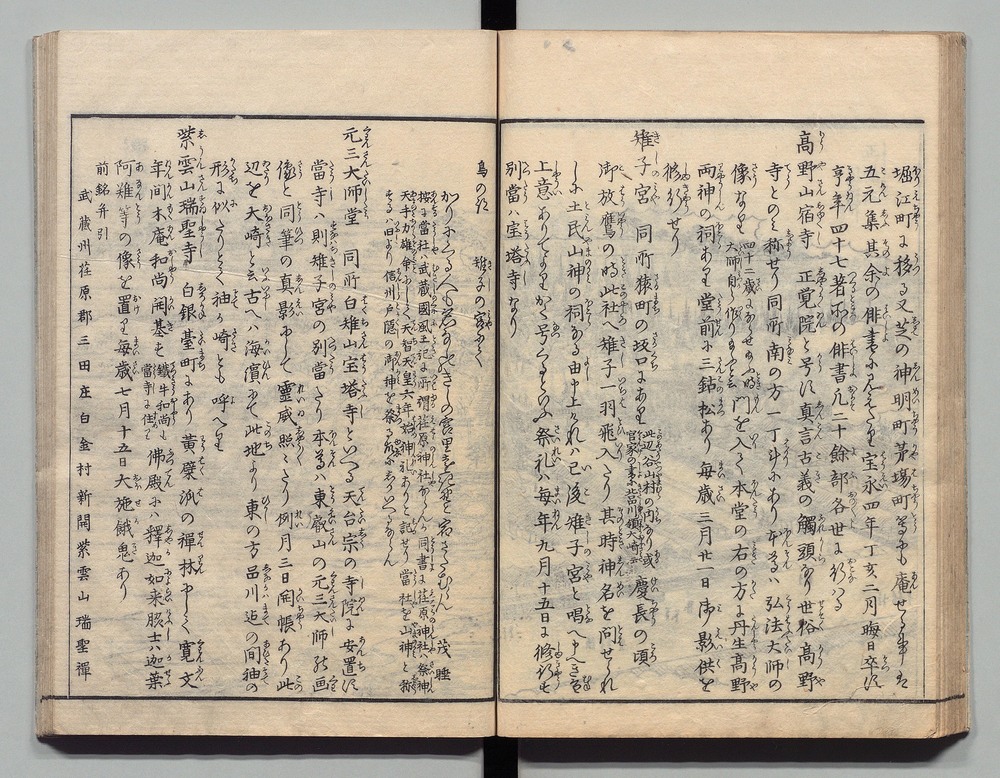 堀江町に移る又芝の神明町茅場町等にも庵せし事は
五元集其余の俳書に見えたり宝永四年丁亥二月晦日卒す
享年四十七著所の俳書凡二十餘部各世に行はる
高野山宿寺 正覚院と号す真言古義の觸頭なり世俗高野
寺とのミ称せり同所南の方一丁斗にあり本尊ハ弘法大師の
像なり 四十二歳になりせ給ふ時大師自ら作り給ふと云 門を入て本堂の右の方に丹生高野
両神の祠あり堂前に三鈷松あり毎歳三月廿一日御影供を
修行せり
雉子宮 同所猿町の坂口にあり 慶長の頃
御放鷹の時此社へ雉子一羽飛入たり其時神名を問せられ
しに土民山神の祠なる由申上けれハ已後雉子宮と唱へ申へき旨
上意ありてよりかく号くるといふ祭礼ハ毎年九月十五日に修行す
別當ハ宝塔寺なり
鳥のた 雉子の宮にて
茂睡
按に當社ハ武蔵國風土記に所謂荏原神社ならんか同書に荏原神社祭神
天手力雄命にして天智天皇六年始神礼ありと記せり當社を山神と称
する旧より信州戸隠の御神を祭る所にあらんか
元三大師堂 同所白雉山宝塔寺といへる天台宗の寺院に安置す
當寺ハ則雉子宮の別當たり本尊ハ東叡山の元三大師の画
像と同筆の真影にして霊威照々たり例月三日開帳あり此
辺を大崎と云古へハ海濱にて此地より東の方品川迄の間袖の
形に似たりとて袖か崎とも呼へり
紫雲山瑞聖寺 白銀臺町にあり黄檗派の禅林にして寛文
年間木庵和尚開基す 鐵牛和尚も當寺に住す 佛殿にハ釋迦如来脇士ハ迦葉
阿難等の像を置り毎歳七月十五日大施餓鬼あり
前銘并引
武蔵州荏原郡三田庄白金村新開紫雲山瑞聖禪